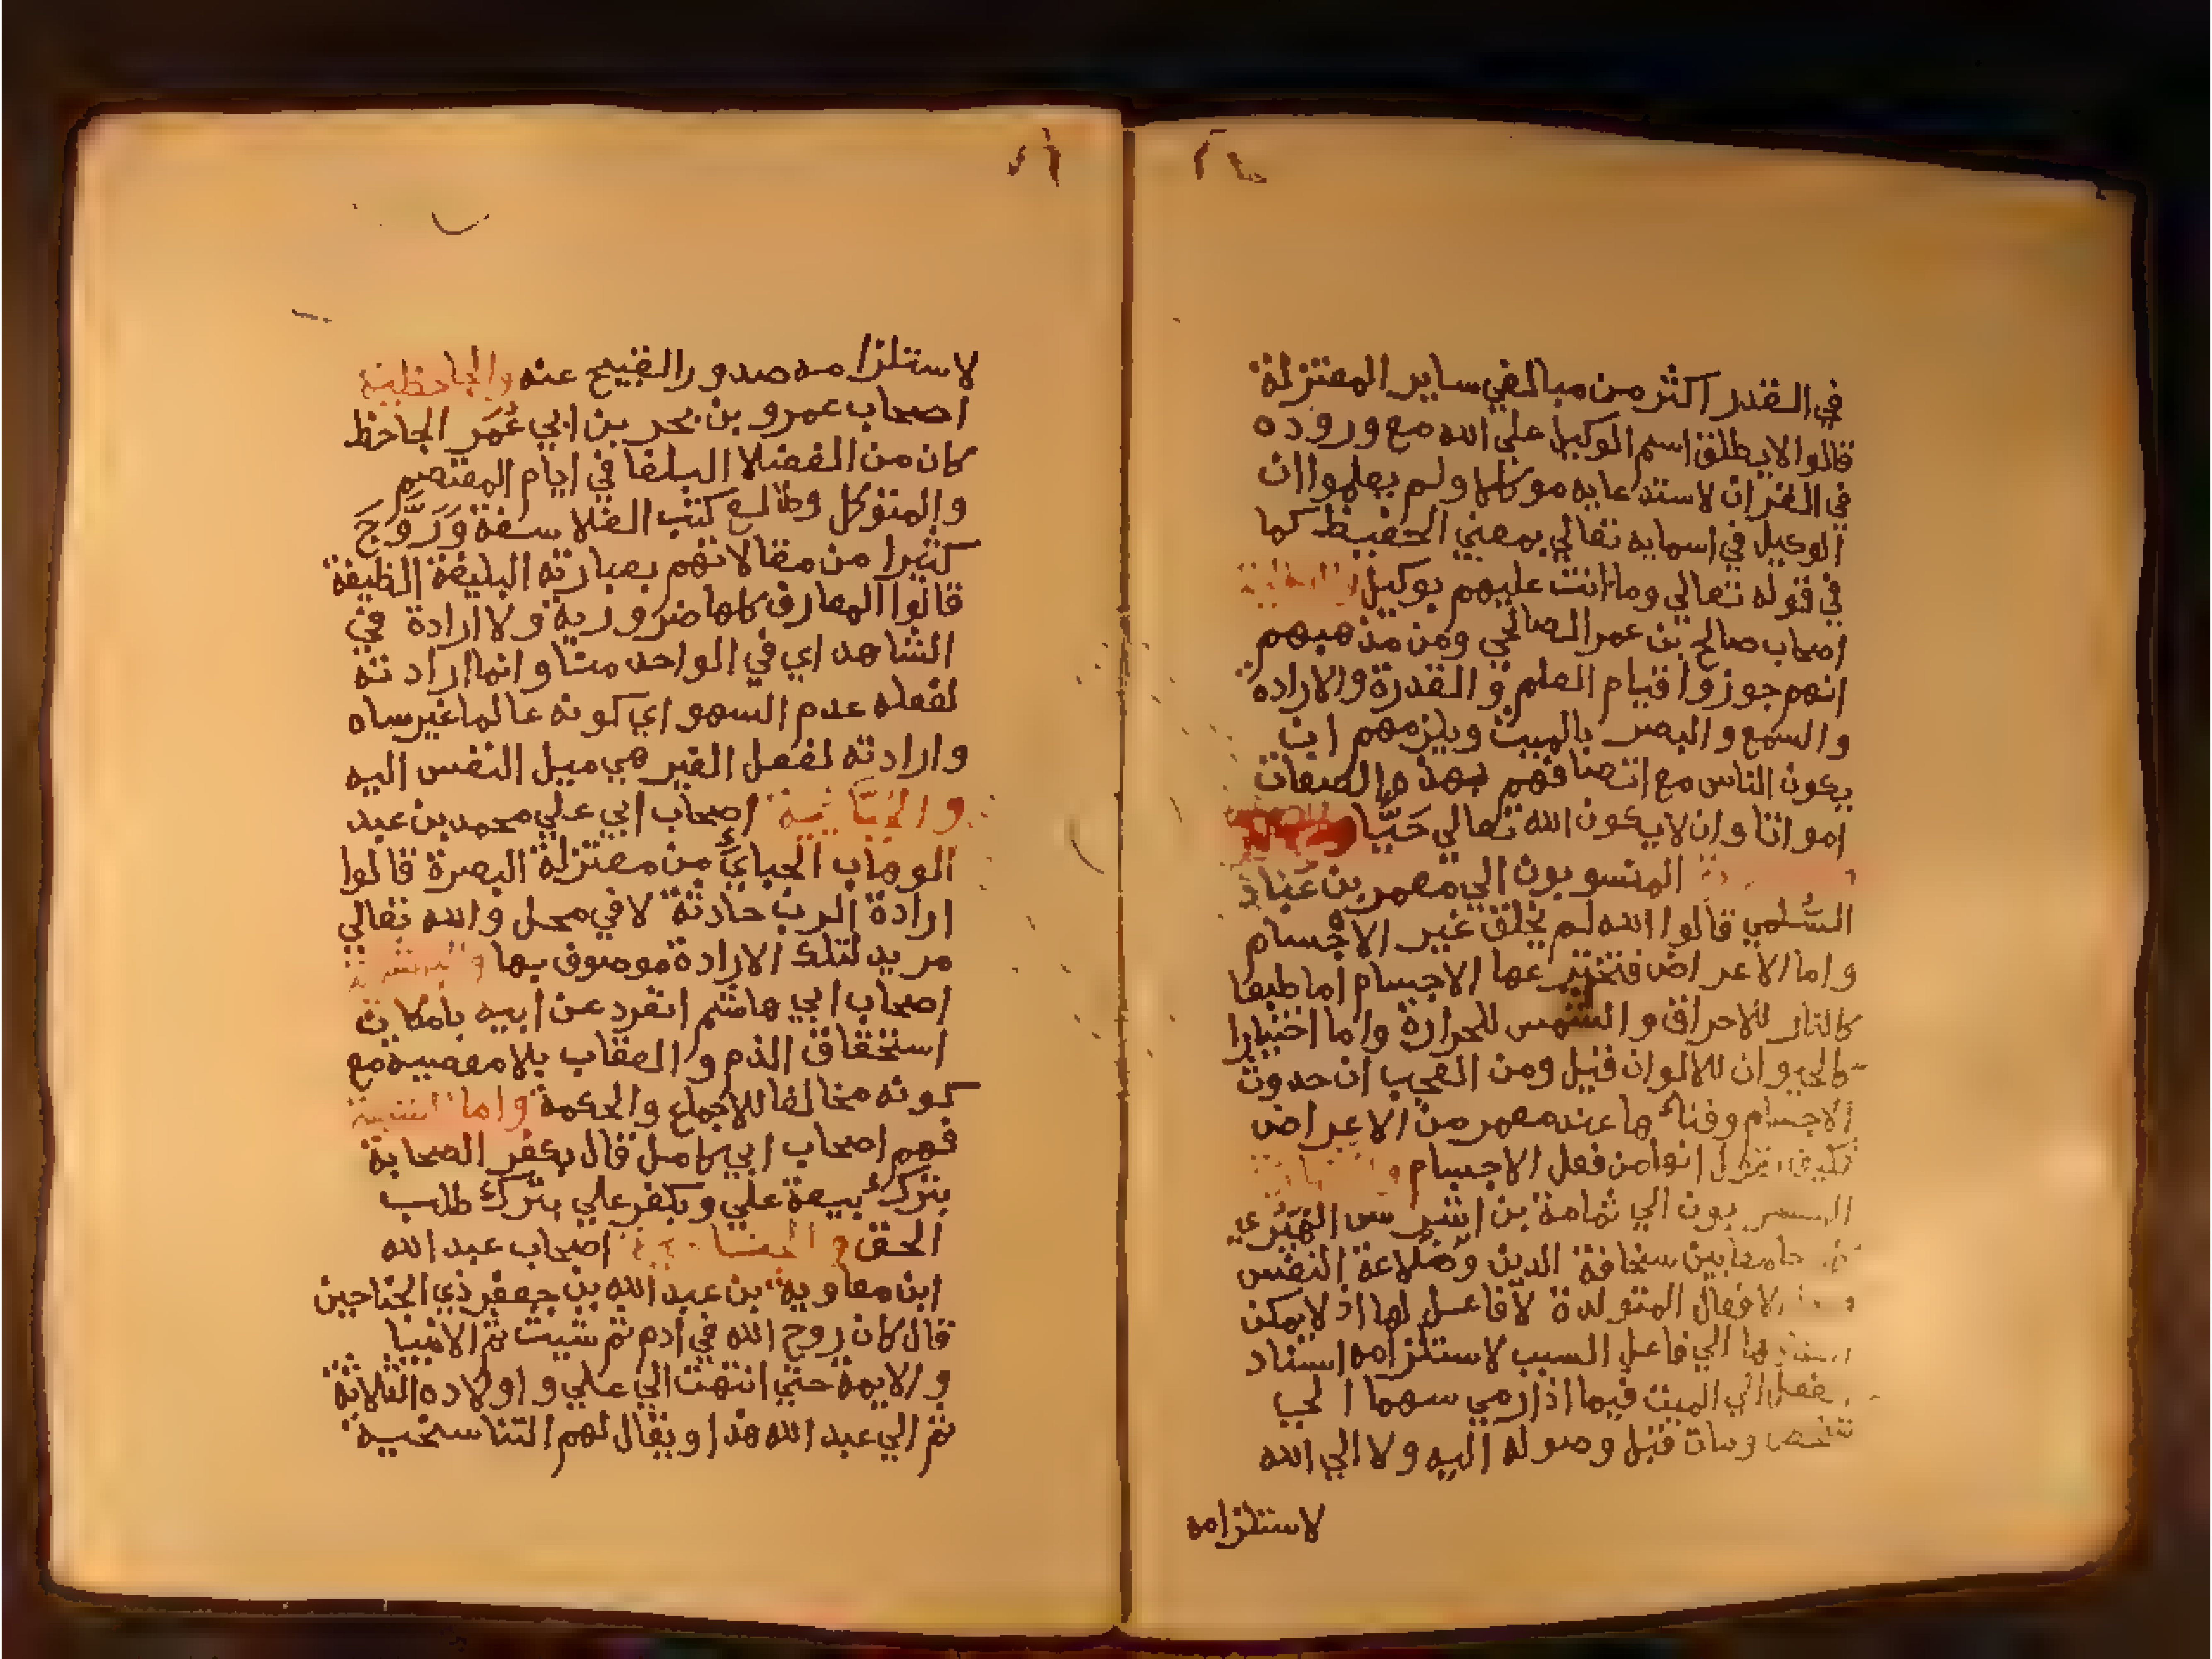 في القدر اكثر من مبالغي ساير المعتزلة
قالوا لا يطلق اسم الوكيل على الله مع وروده
في القران لاستدعايه موكلا ولم يعلموا ان
الوكيل في اسمايه تعالي بمعني الحفيظ كما
في قوله تعالي وما انت عليهم بوكيل
اصحاب صالح بن عمر الصالحي ومن مذهبهم
انهم جوزوا قيام العلم و القدرة والارادة
والسمع والبصر بالميت ويلزمهم ان
يكون الناس مع اتصافهم بهذه الصفات
امواتا وان لا يكون الله تعالي حَيًّا
المنسوبون الي معمر بن عَبَّاد
السُّلمي قالوا الله لم يخلق غير الاجسام
واما الاعراض فتخترعها الاجسام اما طبعا
كالنار للاحراق والشمس للحرارة واما اختيارا
كالحيوان للالوان قيل ومن العجب ان حدوث
الاجسام وفناءها عند معمر من الاعراض
فكيف يقول انها من فعل الاجسام
المنسوبون الي ثمامة بن اشرس النميري
جامعا بين سخافة الدين وخلاعة النفس
الافعال المتولدة لا فاعل لها اذ لا يمكن
اسنادها الي فاعل السبب لاستلزامه اسناد
الفعل الي الميت فيما اذا رمي سهما الي
شخص ومات قبل وصوله اليه ولا الي الله
لاستلزامه
لاستلزامه صدور القبيح عنه والجاحظية
اصحاب عمرو بن بحر بن ابي عُمَر الجاحظ
كان من الفضلا البلغا في ايام المعتصم
والمتوكل وطالع كتب الفلاسفة وَرَوَّجَ
كثيرا من مقالاتهم بعبارته البليغة الطيفة
قالوا المعارف كلها ضرورية ولا ارادة في
الشاهد اي في الواحد منا وانما ارادته
لفعله عدم السهو اي كونه عالما غير ساه
وارادته لفعل الغير هي ميل النفس اليه
اصحاب ابي علي محمد بن عبد
الوهاب الجباي من معتزلة البصرة قالوا
ارادة الرب حادثة لا في محل والله تعالي
مريد لتلك الارادة موصوف بها
اصحاب ابي هاشم انفرد عن ابيه بامكان
استحقاق الذم والعقاب بلا معصية مع
كونه مخالفا للاجماع والحكمة واما الشيعة
فهم اصحاب ابي كامل قال بكفر الصحابة
بترك بيعة علي وبكفر علي بترك طلب
الحق اصحاب عبد الله
ابن معاوية بن عبد الله بن جعفر ذي الجناحين
قال كان روح الله في ادم ثم شيت ثم الانبيا
والايمة حتي انتهت الي علي و اولاده الثلاثة
ثم الي عبد الله هذا ويقال لهم التناسخية